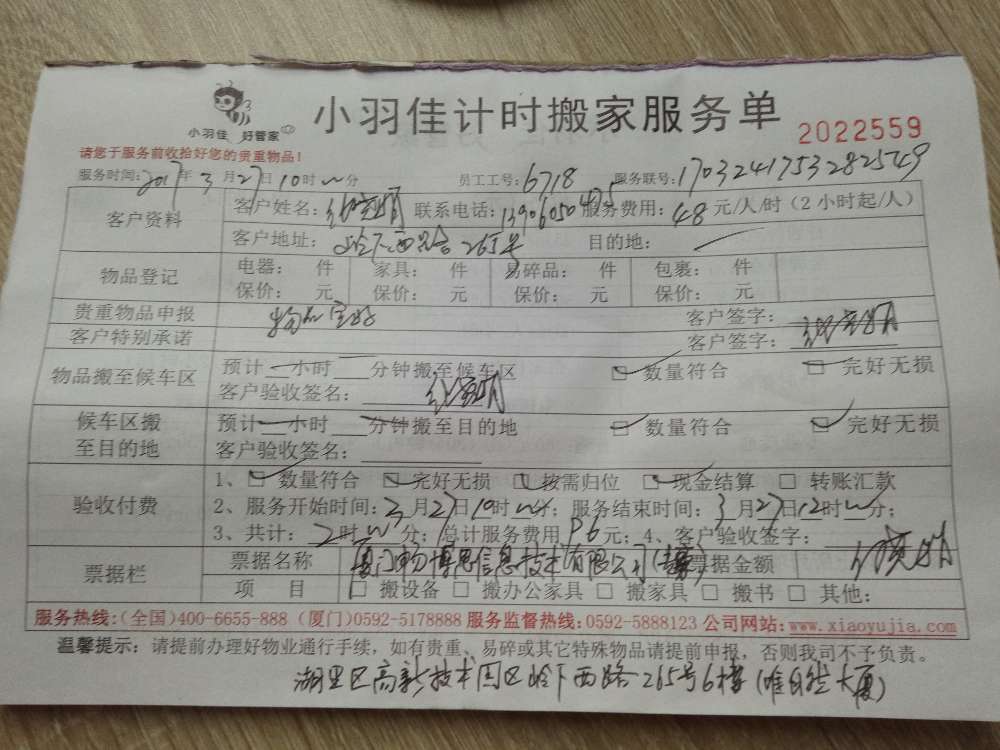 小羽佳 好管家
小羽佳计时搬家服务单
2022559
请您于服务前收拾好您的贵重物品!
服务时间:2017年3月27日10时00分 员工工号:6718 服务联号:1703241753282549
客户资料 客户姓名: 联系电话:13906050495 服务费用:48元/人/时(2小时起/人)
客户地址:岭下西路265号 目的地:
物品登记 电器: 件 家具: 件 易碎品: 件 包裹: 件
保价: 元 保价: 元 保价: 元 保价: 元
贵重物品申报 物品完好 客户签字:
客户特别承诺 客户签字:
物品搬至候车区 预计一小时 分钟搬至候车区 数量符合 完好无损
客户验收签名:
候车区搬至目的地 预计一小时 分钟搬至目的地 数量符合 完好无损
客户验收签名:
验收付费 1、数量符合 完好无损 按需归位 现金结算 转账汇款
2、服务开始时间:3月27日10时00分;服务结束时间:3月27日12时00分;
3、共计:2时00分;总计服务费用96元;4、客户验收签字:
票据栏 票据名称 厦门 博思信息技术有限公司 票据金额
项 目 搬设备 搬办公家具 搬家具 搬书 其他:
服务热线:(全国)400-6655-888 (厦门)0592-5178888 服务监督热线:0592-5888123 公司网站:www.xiaoyujia.com
温馨提示:请提前办理好物业通行手续,如有贵重、易碎或其它特殊物品请提前申报,否则我司不予负责。
湖里区高新技术园区岭下西路265号6楼(唯自然大厦)